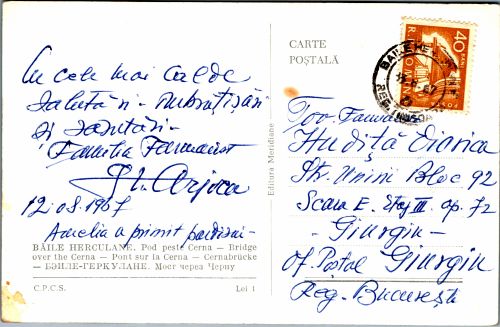 Cu cele mai calde
salutări - îmbrățișări
și sărutări -
Familia Farmacist
Gh. Arjoca
12.08.1967
Amelia a primit
BĂILE HERCULANE. Pod peste Cerna — Bridge
over the Cerna — Pont sur la Cerna — Cernabrücke
— БЭИЛЕ-ГЕРКУЛАНЕ. Мост через Черну
C.P.C.S.
Lei 1
Editura Meridiane
CARTE
POȘTALĂ
40 BANI
R.P. ROMÎNĂ
POSTA
BĂILE HERCULANE
REG.
Tov. Familia
Hudiță Viorica
Str. Unirii Bloc 92
Scara E. Etaj III ap. 72
- Giurgiu -
of. Poștal Giurgiu
Reg. București